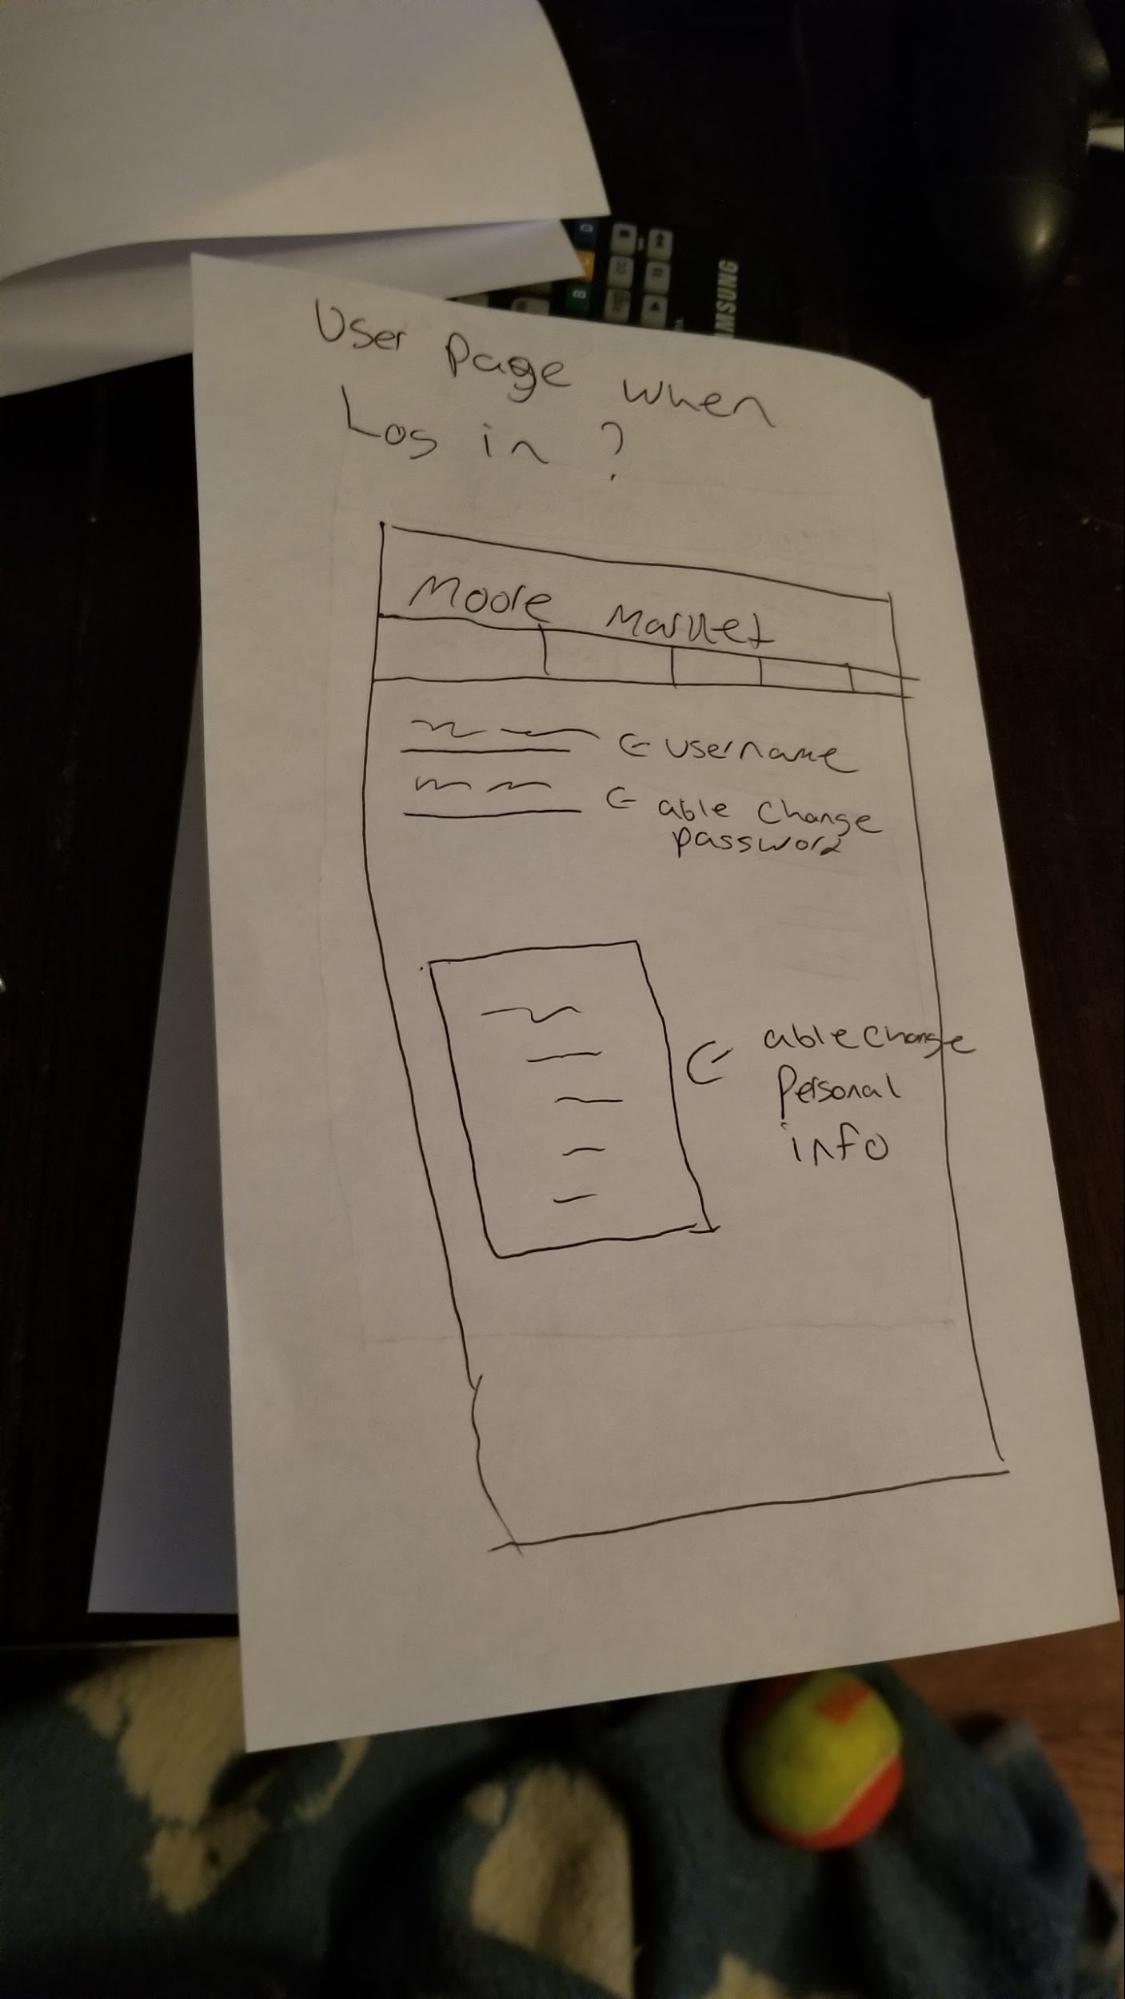 User Page when
Log in ?
Moore Market
← username
← able change
password
← able change
Personal
info
SAMSUNG
B
D